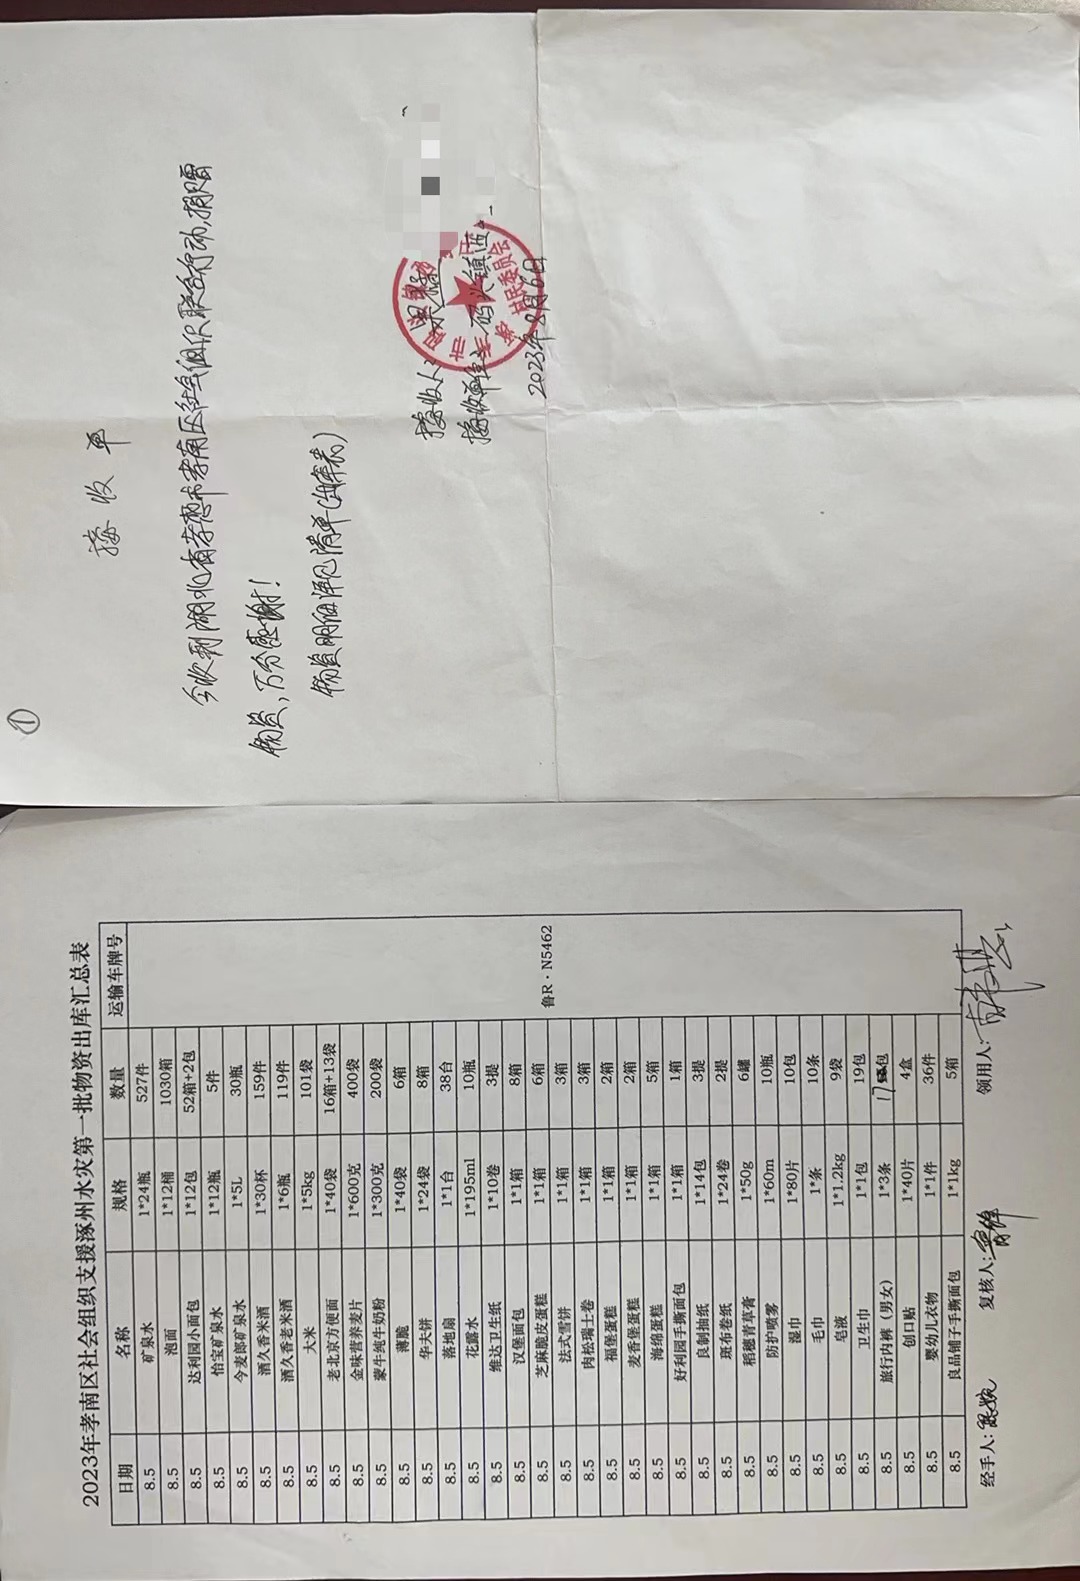 ①
接收单
今收到湖北省孝感市孝南区社会组织联合行动,捐赠
物资,万分感谢!
物资明细详见清单(出库表)
接收人:
接收单位:码头镇
村民委员会
2023年8月6日
2023年孝南区社会组织支援涿州水灾第一批物资出库汇总表
日期 名称 规格 数量 运输车牌号
8.5 矿泉水 1*24瓶 527件 鲁R·N5462
8.5 泡面 1*12桶 1030箱
8.5 达利园小面包 1*12包 52箱+2包
8.5 怡宝矿泉水 1*12瓶 5件
8.5 今麦郎矿泉水 1*5L 30瓶
8.5 酒久香米酒 1*30杯 159件
8.5 酒久香老米酒 1*6瓶 119件
8.5 大米 1*5kg 101袋
8.5 老北京方便面 1*40袋 16箱+13袋
8.5 金味营养麦片 1*600克 400袋
8.5 蒙牛纯牛奶粉 1*300克 200袋
8.5 薄脆 1*40袋 6箱
8.5 华夫饼 1*24袋 8箱
8.5 落地扇 1*1台 38台
8.5 花露水 1*195ml 10瓶
8.5 维达卫生纸 1*10卷 3提
8.5 汉堡面包 1*1箱 8箱
8.5 芝麻脆皮蛋糕 1*1箱 6箱
8.5 法式雪饼 1*1箱 3箱
8.5 肉松瑞士卷 1*1箱 3箱
8.5 福堡蛋糕 1*1箱 2箱
8.5 麦香堡蛋糕 1*1箱 2箱
8.5 海绵蛋糕 1*1箱 5箱
8.5 好利园手撕面包 1*1箱 1箱
8.5 良制抽纸 1*14包 3提
8.5 斑布卷纸 1*24卷 2提
8.5 稻穗青草膏 1*50g 6罐
8.5 防护喷雾 1*60m 10瓶
8.5 湿巾 1*80片 10包
8.5 毛巾 1*条 10条
8.5 皂液 1*1.2kg 9袋
8.5 卫生巾 1*1包 19包
8.5 旅行内裤(男女) 1*3条 17包
8.5 创口贴 1*40片 4盒
8.5 婴幼儿衣物 1*1件 36件
8.5 良品铺子手撕面包 1*1kg 5箱
经手人: 复核人: 领用人: